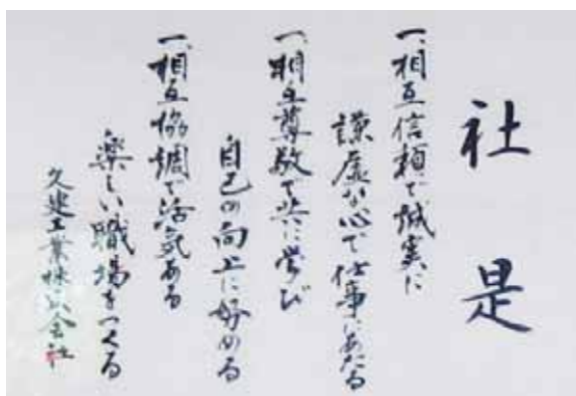 社是
一、相互信頼で誠実に
謙虚な心で仕事にあたる
一、相互尊敬で共に学び
自己の向上に努める
一、相互協調で活気ある
楽しい職場をつくる
久建工業株式会社